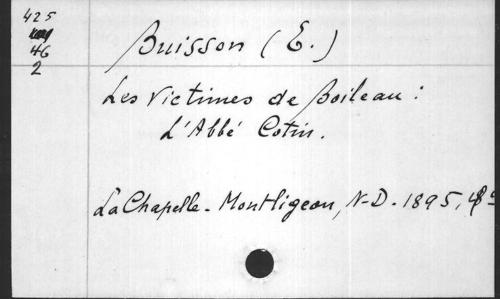 425
46
2
Buisson (E.)
Les Victimes de Boileau :
L'Abbé Cotin.
La Chapelle-Montligeon, N-D. 1895,